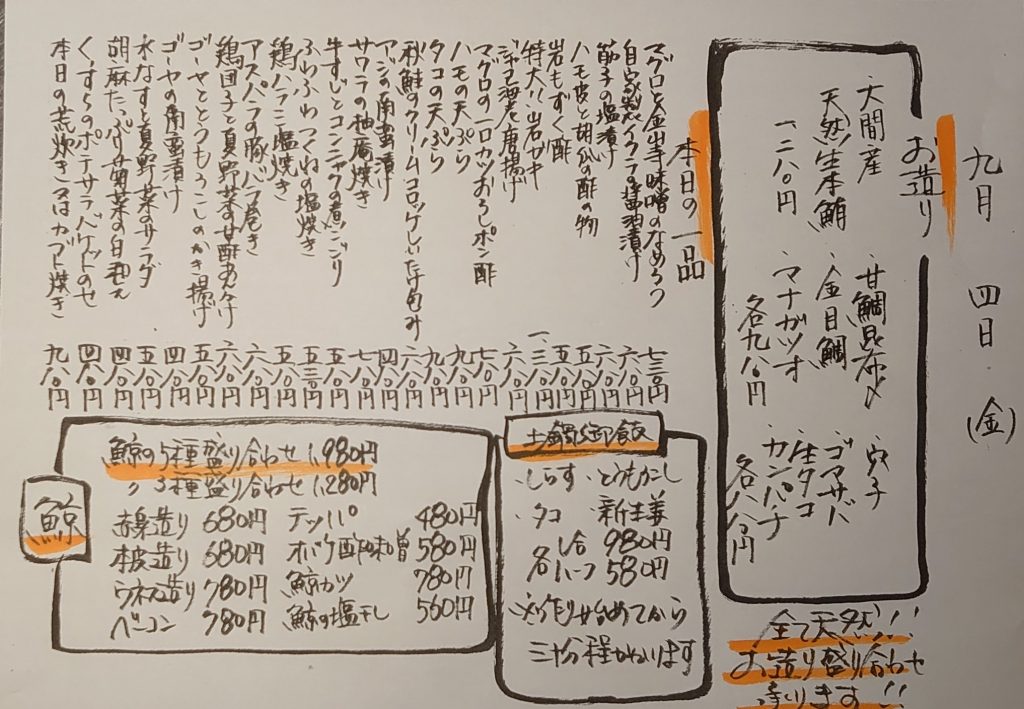 九月 四日 (金)
お造り
大間産 天然生本鮪 一二八〇円
甘鯛昆布〆
金目鯛
マナガツオ
各九八〇円
穴子
ゴマサバ
生タコ
カンパチ
各八八〇円
全て天然!!
お造り盛り合わせ
承ります!!
本日の一品
マグロと金山寺味噌のなめろう 七三〇円
自家製イクラの醤油漬け 六八〇円
筋子の塩漬け 六八〇円
ハモ皮と胡瓜の酢の物 五八〇円
岩もずく酢 五八〇円
特大!!岩ガキ 一、三八〇円
ジャコ海老唐揚げ 六八〇円
マグロの一口カツおろしポン酢 七八〇円
ハモの天ぷら 九八〇円
タコの天ぷら 九八〇円
秋鮭のクリームコロッケしいたけ包み 六八〇円
アジの南蛮漬け 四八〇円
サワラの柚庵焼き 七八〇円
牛すじとコンニャクの煮こごり 五八〇円
ふわふわつくねの塩焼き 五三〇円
鶏ハラミ塩焼き 五八〇円
アスパラの豚バラ巻き 六八〇円
鶏団子と夏野菜の甘酢あんかけ 六八〇円
ゴーヤととうもろこしのかき揚げ 五八〇円
ゴーヤの南蛮漬け 四八〇円
水なすと夏野菜のサラダ 五八〇円
胡麻たっぷり菊菜の白和え 四八〇円
くんすらのポテサラバケットのせ 四八〇円
本日の荒炊き 又はカブト焼き 九八〇円
土鍋御飯
・しらす ・とうもろこし
・タコ ・新生姜
各 一合 980円
ハーフ 580円
※作り始めてから
三十分程かかります
鯨
鯨の5種盛り合わせ 1,980円
〃 3種盛り合わせ 1,280円
赤身造り 680円 テッパ 480円
本皮造り 680円 オバケ酢味噌 580円
ウネス造り 780円 鯨カツ 780円
ベーコン 780円 鯨の塩干し 560円